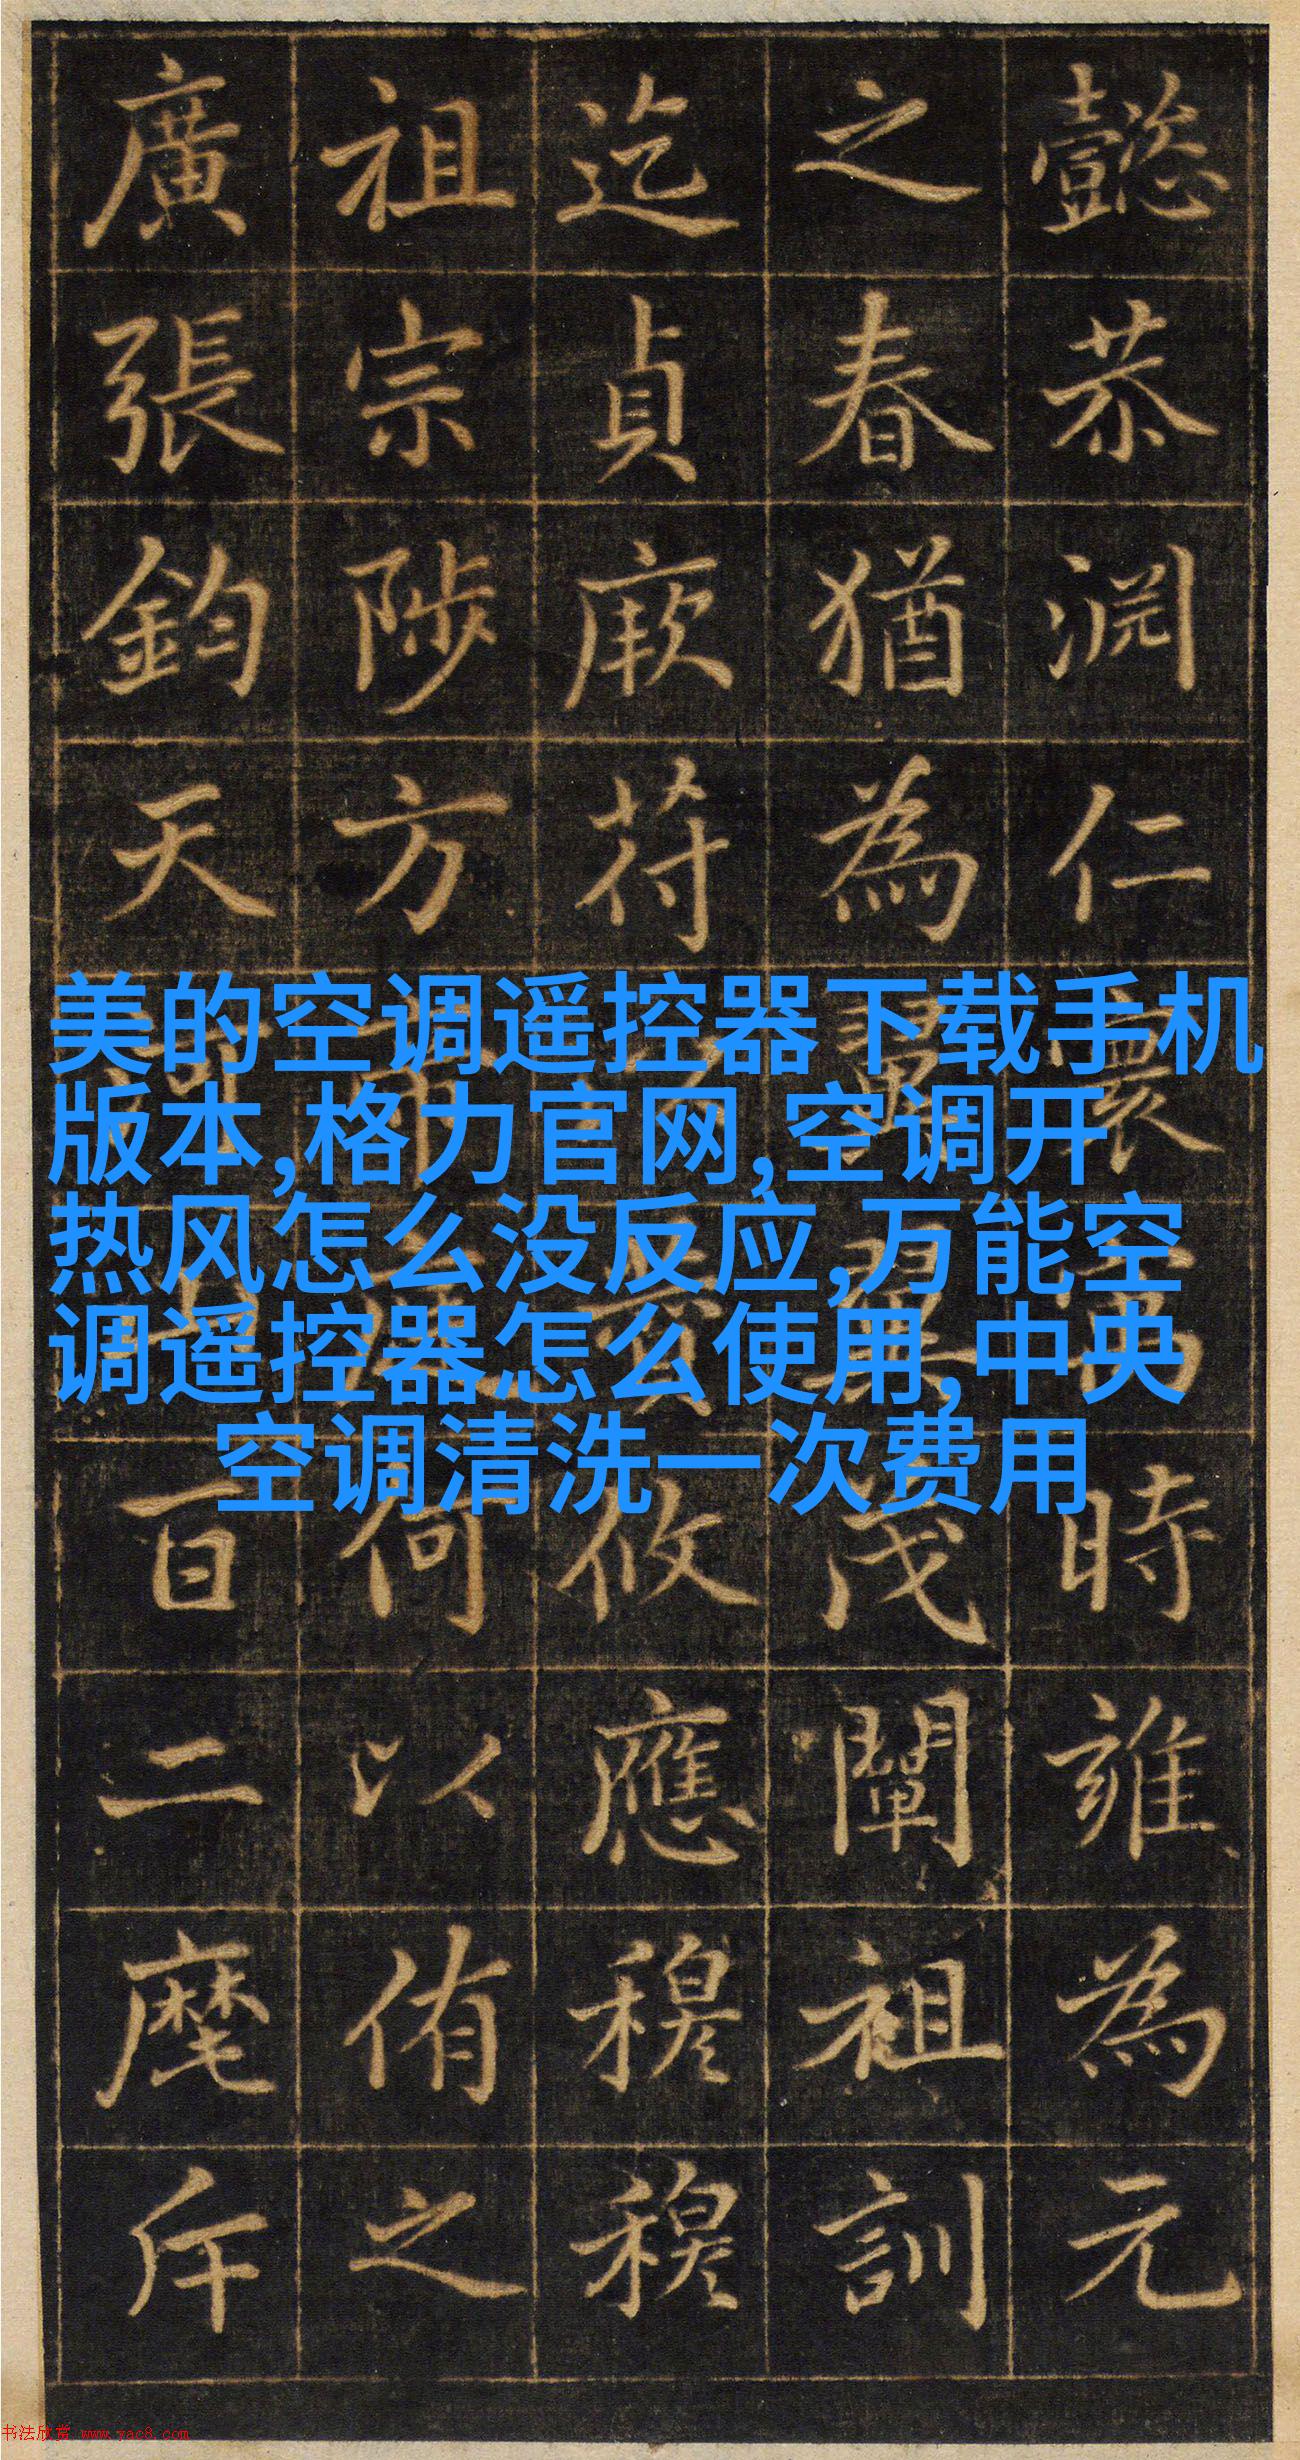 懿恭淵仁時雍為元
之春猶為翼翼茂闡祖訓
迄貞厥苻攸應穆穆
祖宗陟方何以侑之
廣張鈞天百二麾斥
美的空调遥控器下载手机
版本,格力官网,空调开
热风怎么没反应,万能空
调遥控器怎么使用,中央
空调清洗一次费用
书法欣赏 www.yac8.com